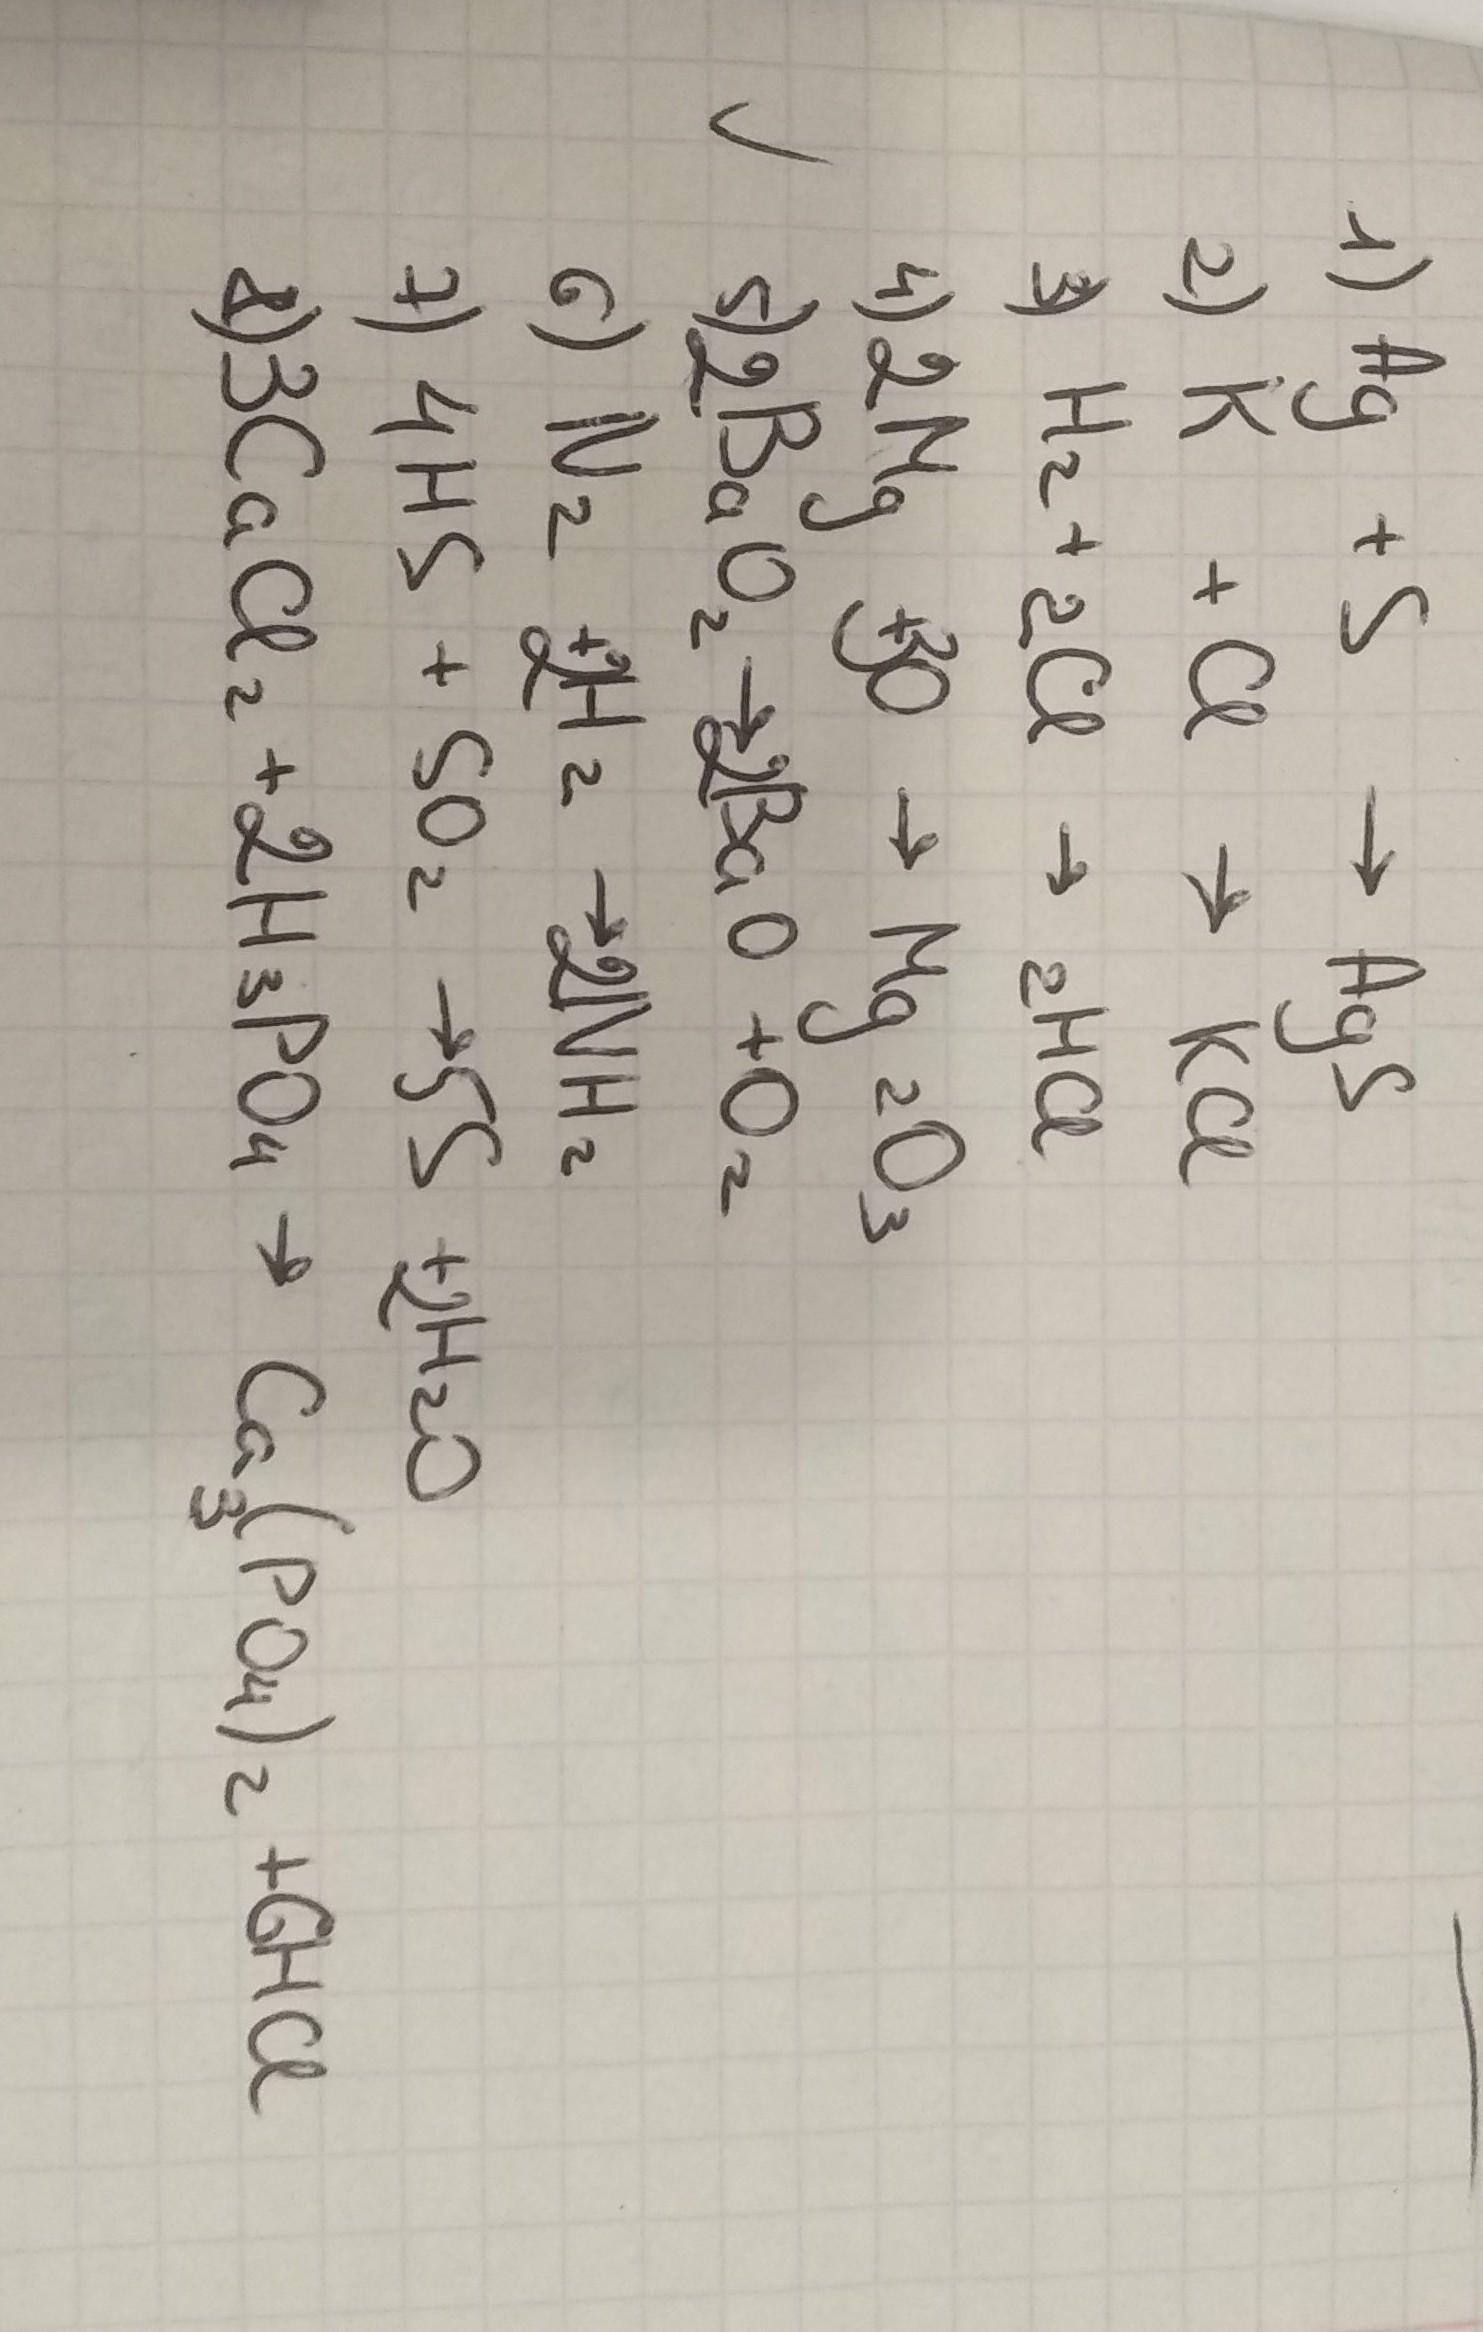 1) Ag + S → AgS
2) K + Cl → KCl
3) H2 + 2Cl → 2HCl
4) 2Mg + 3O → Mg2O3
5) 2BaO2 → 2BaO + O2
6) N2 + 2H2 → 2NH2
7) 4HS + SO2 → 5S + 2H2O
8) 3CaCl2 + 2H3PO4 → Ca3(PO4)2 + 6HCl